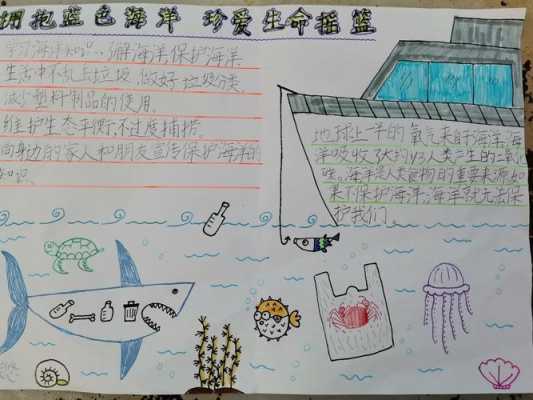 拥抱蓝色海洋 珍爱生命摇篮
学习海洋知识,了解海洋,保护海洋
生活中不乱扔垃圾,做好垃圾分类.
减少塑料制品的使用.
维护生态平衡,不过度捕捞.
向身边的家人和朋友宣传保护海洋的
知识.
地球上一半的氧气来自海洋,海
洋吸收了大约1/3人类产生的二氧化
碳。海洋是人类食物的重要来源,如
果不保护海洋,海洋就无法保
护我们。